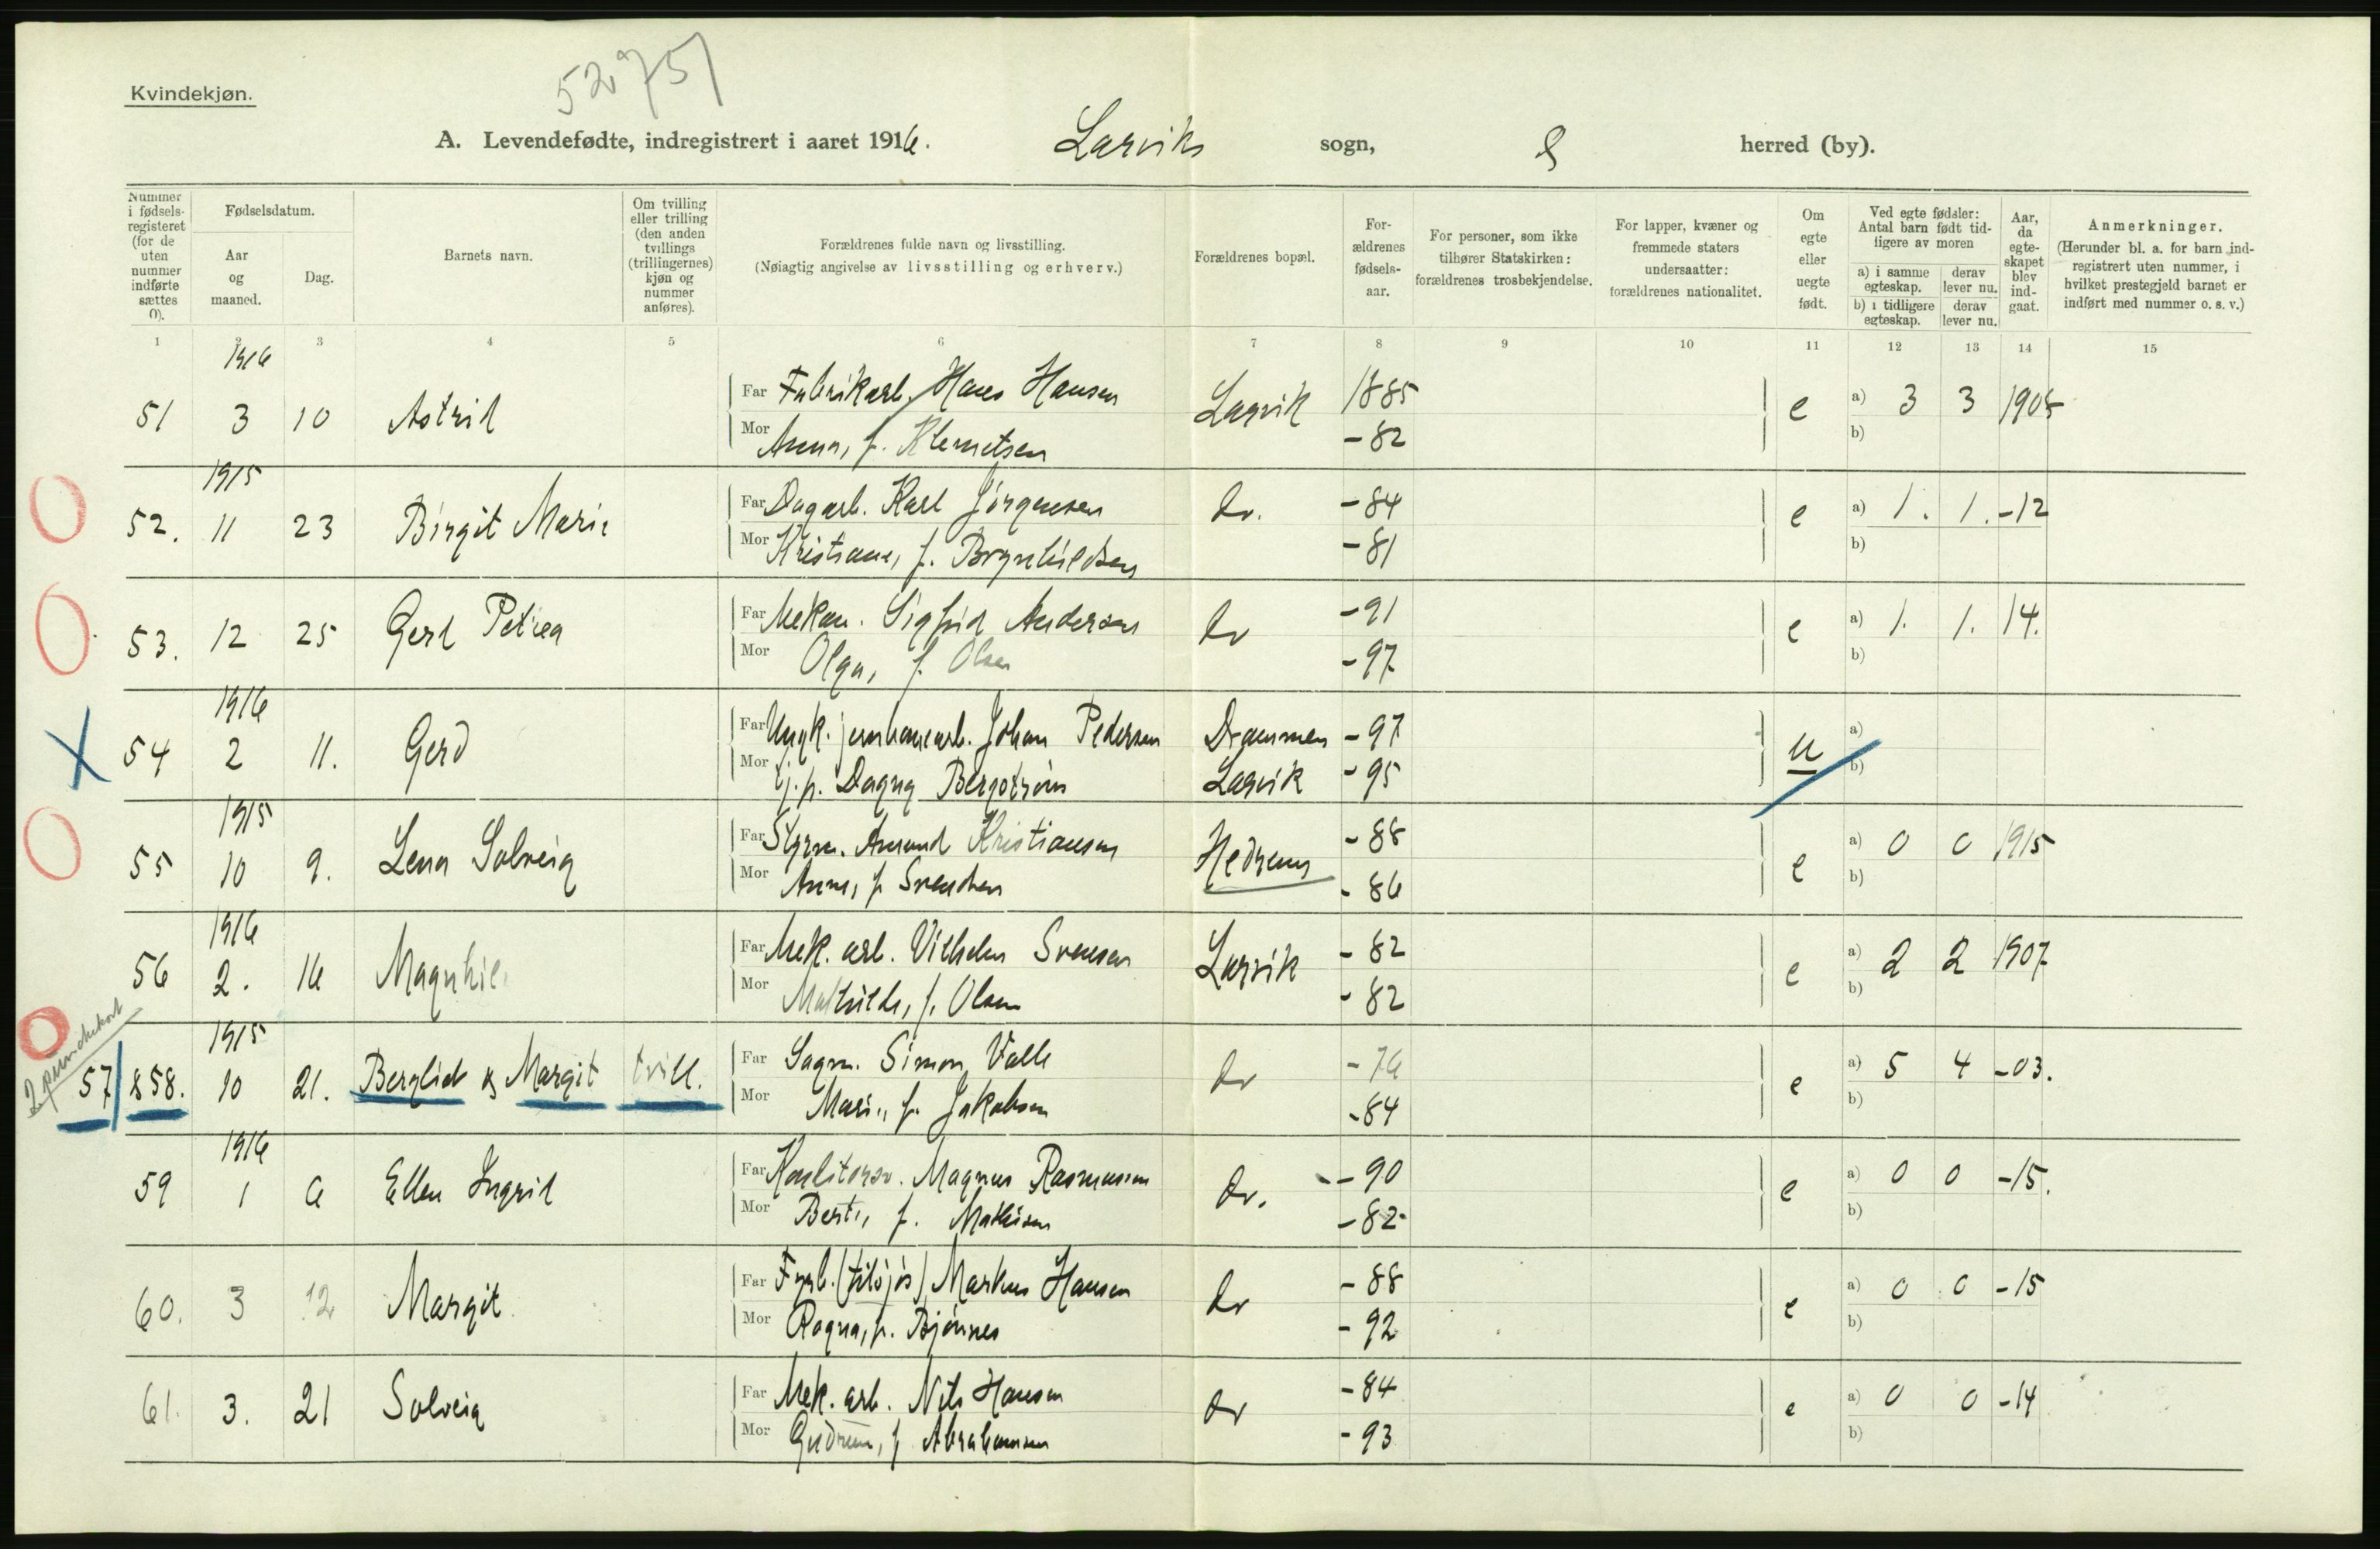 52751
Kvindekjøn.
A. Levendefødte, indregistrert i aaret 1916. Larviks sogn, & herred (by).
Nummer i fødselsregisteret (for de uten nummer indførte sættes 0).
Fødselsdatum.
Aar og maaned.
Dag.
Barnets navn.
Om tvilling eller trilling (den anden tvillings (trillingernes) kjøn og nummer anføres).
Forældrenes fulde navn og livsstilling.
(Nøiagtig angivelse av livsstilling og erhverv.)
Forældrenes bopæl.
Forældrenes fødselsaar.
For personer, som ikke tilhører Statskirken: forældrenes trosbekjendelse.
For lapper, kvæner og fremmede staters undersaatter: forældrenes nationalitet.
Om egte eller uegte født.
Ved egte fødsler: Antal barn født tidligere av moren
a) i samme egteskap. derav lever nu.
b) i tidligere egteskap. derav lever nu.
Aar, da egteskapet blev indgaat.
Anmerkninger.
(Herunder bl. a. for barn indregistrert uten nummer, i hvilket prestegjeld barnet er indført med nummer o. s. v.)
1 2 3 4 5 6 7 8 9 10 11 12 13 14 15
1916
51 3 10 Astrid Far Fabrikarb. Hans Hansen Larvik 1885 e a) 3 3 1908
Mor Anna, f. Klemetsen - 82 b)
1915
52. 11 23 Birgit Marie Far Dagarb. Karl Jørgensen do. - 84 e a) 1. 1. - 12
Mor Kristiane, f. Brynhildsen - 81 b)
53. 12 25 Gerd Petrea Far Mekan. Sigfrid Andersen do - 91 e a) 1. 1. 14.
Mor Olga, f. Olsen - 97 b)
1916
54 2 11. Gerd Far Ungk. jernbanearb. Johan Pedersen Drammen - 97 u a)
Mor Pj. p. Dagny Bergstrøm Larvik - 95 b)
1915
55 10 9. Lena Solveig Far Styrm. Amund Kristiansen Hedrum - 88 e a) 0 0 1915
Mor Anna, f. Svendsen - 86 b)
1916
56 2. 16 Magnhil Far Mek. arb. Vilhelm Svensen Larvik - 82 e a) 2 2 1907
Mor Mathilde, f. Olsen - 82 b)
2 punchekort
1915
57 & 58. 10 21. Berglid & Margit tvill. Far Sagm. Simon Valle do - 76 e a) 5 4 - 03.
Mor Marie, f. Jakobsen - 84 b)
1916
59 1 6 Ellen Ingrid Far Magnus Rasmussen do. - 90 e a) 0 0 - 15.
Mor Berte, f. Mathisen - 82 b)
60. 3 12 Margit Far Fyrb. (tilsjøs) Markus Hansen do - 88 e a) 0 0 - 15
Mor Ragna, f. Bjønnes - 92 b)
61. 3. 21 Solveig Far Mek. arb. Nils Hansen do - 84 e a) 0 0 - 14
Mor Gudrun, f. Abrahamsen - 93 b)